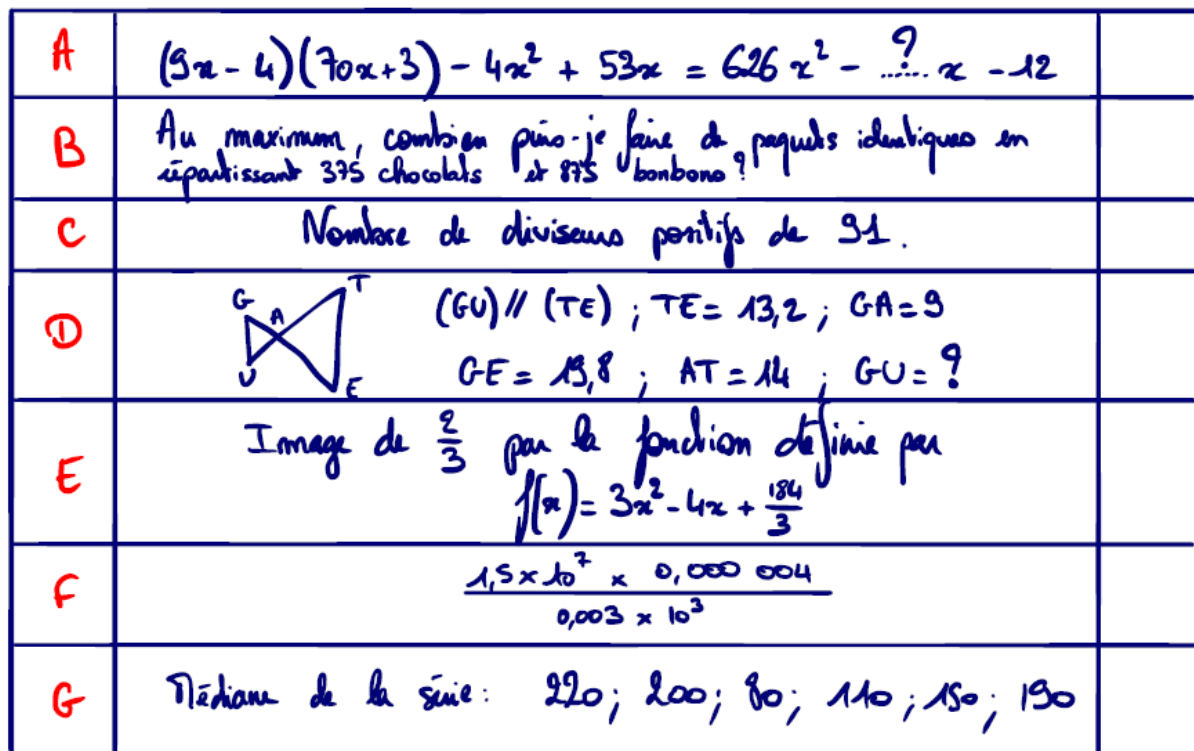 A
(9x - 4)(70x+3) - 4x² + 53x = 626 x² - ...?... x - 12
B
Au maximum, combien puis-je faire de paquets identiques en
répartissant 375 chocolats et 875 bonbons ?
C
Nombre de diviseurs positifs de 91.
D
G T A U E
(GU) // (TE) ; TE = 13,2 ; GA = 9
GE = 19,8 ; AT = 14 ; GU = ?
E
Image de 2/3 par la fonction définie par
f(x) = 3x² - 4x + 184/3
F
1,5 × 10⁷ × 0,000 004
0,003 × 10³
G
Médiane de la série : 220 ; 200 ; 80 ; 110 ; 150 ; 190